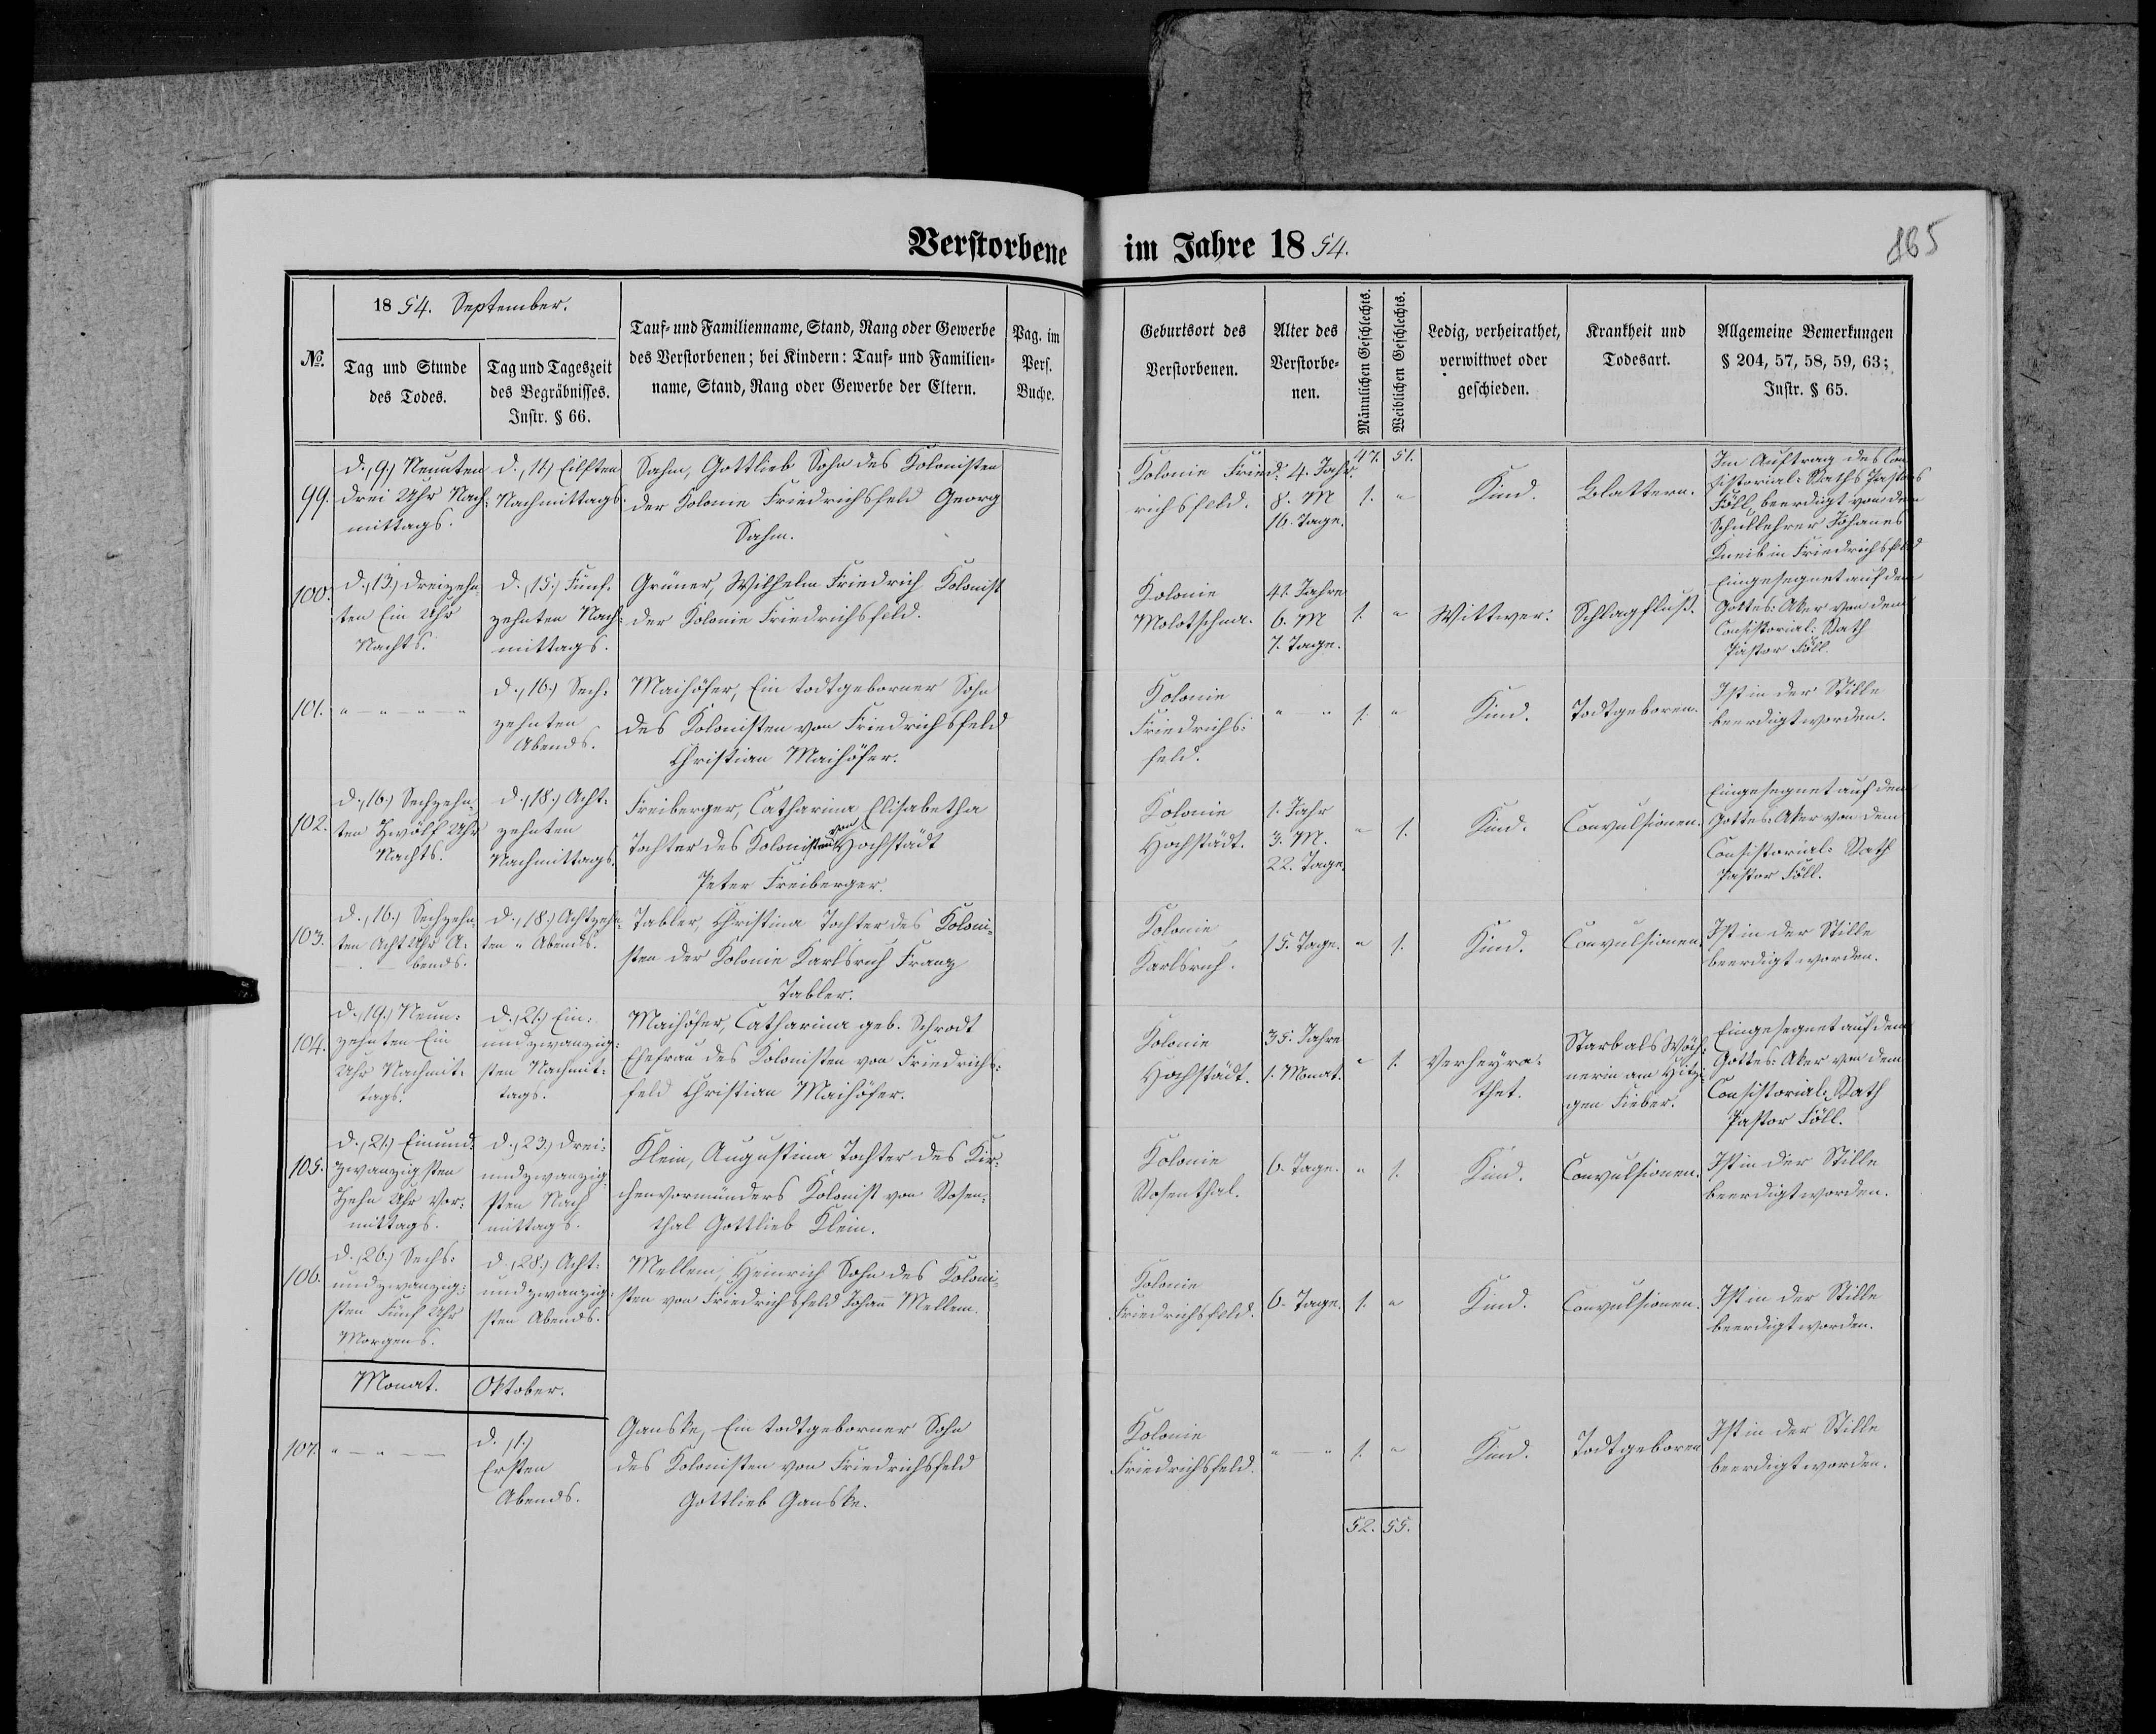 Verstorbene im Jahre 1854.
165
№.
1854. September.
Tag und Stunde
des Todes.
Tag und Tageszeit
des Begräbnisses.
Instr. § 66.
Tauf- und Familienname, Stand, Rang oder Gewerbe
des Verstorbenen; bei Kindern: Tauf- und Familien-
name, Stand, Rang oder Gewerbe der Eltern.
Pag. im
Pers.
Buche.
Geburtsort des
Verstorbenen.
Alter des
Verstorbe-
nen.
Männlichen Geschlechts.
Weiblichen Geschlechts.
Ledig, verheirathet,
verwittwet oder
geschieden.
Krankheit und
Todesart.
Allgemeine Bemerkungen
§ 204, 57, 58, 59, 63;
Instr. § 65.
47. 51.
99.
d. (9.) Neunten
drei Uhr Nach:
mittags.
d. (11.) Eilften
Nachmittags
Sahm, Gottlieb Sohn des Kolonisten
der Kolonie Friedrichsfeld Georg
Sahm.
Kolonie Fried:
richsfeld.
4. Jahr.
8. M
16. Tage.
1. "
Kind.
Blattern.
Im Auftrag des Con
sistorial: Raths Pastors
Föll, beerdigt von dem
Schullehrer Johanes
Kneib in Friedrichsfeld
100.
d. (13.) dreizehn
ten Ein Uhr
Nachts.
d. (15.) Fünf:
zehnten Nach:
mittags.
Grüner, Wilhelm Friedrich Kolonist
der Kolonie Friedrichsfeld.
Kolonie
Molotschna.
41. Jahre
6. M
7. Tage.
1. "
Wittwer:
Schlagfluß.
Eingesegnet auf dem
Gottes: Aker von dem
Consistorial: Rath
Pastor Föll.
101.
" — " — " — "
d. (16.) Sech:
zehnten
Abends.
Maihöfer, Ein todtgeborner Sohn
des Kolonisten von Friedrichsfeld
Christian Maihöfer.
Kolonie
Friedrichs:
feld.
" "
1. "
Kind.
Todtgeboren.
Ist in der Stille
beerdigt worden.
102.
d. (16.) Sechzehn
ten Zwölf Uhr
Nachts.
d. (18.) Acht:
zehnten
Nachmittags.
Freiberger, Catharina Elisabetha
Tochter des Kolonisten von Hochstädt
Peter Freiberger.
Kolonie
Hochstädt.
1. Jahr
3. M.
22. Tage.
" 1.
Kind.
Convulsionen.
Eingesegnet auf dem
Gottes: Aker von dem
Consistorial: Rath
Pastor Föll.
103.
d. (16.) Sechzehn
ten Acht Uhr A:
bends.
d. (18.) Achtzehn
ten " Abends.
Tabler, Christina Tochter des Koloni:
sten der Kolonie Karlsruh Franz
Tabler.
Kolonie
Karlsruh.
15. Tage.
" 1.
Kind.
Convulsionen.
Ist in der Stille
beerdigt worden.
104.
d. (19.) Neun:
zehnten Ein
Uhr Nachmit:
tags.
d. (21.) Ein:
undzwanzig:
sten Nachmit:
tags.
Maihöfer, Catharina geb. Schrodt
Ehefrau des Kolonisten von Friedrichs:
feld Christian Maihöfer.
Kolonie
Hochstädt.
35. Jahre
1. Monat.
" 1.
Verheyra:
thet.
Starb als Wöch:
nerin am Hitzi:
gen Fieber.
Eingesegnet auf dem
Gottes: Aker von dem
Consistorial: Rath
Pastor Föll.
105.
d. (21.) Einund:
zwanzigsten
Zehn Uhr Vor:
mittags.
d. (23.) drei:
undzwanzig
sten Nach
mittags.
Klein, Augustina Tochter des Kir:
chenvormünders Kolonist von Rosen:
thal Gottlieb Klein.
Kolonie
Rosenthal.
6. Tage.
" 1.
Kind.
Convulsionen.
Ist in der Stille
beerdigt worden.
106.
d. (26.) Sechs:
undzwanzig:
sten Fünf Uhr
Morgens.
d. (28.) Acht:
undzwanzig:
sten Abends.
Mellem, Heinrich Sohn des Koloni:
sten von Friedrichsfeld Johann Mellem.
Kolonie
Friedrichsfeld.
6. Tage.
1. "
Kind.
Convulsionen.
Ist in der Stille
beerdigt worden.
Monat. Oktober.
107.
" — " — —
d. (1.)
Ersten
Abends.
Ganske, Ein todtgeborner Sohn
des Kolonisten von Friedrichsfeld
Gottlieb Ganske.
Kolonie
Friedrichsfeld.
" — "
1. "
Kind.
Todtgeboren
Ist in der Stille
beerdigt worden.
52. 55.